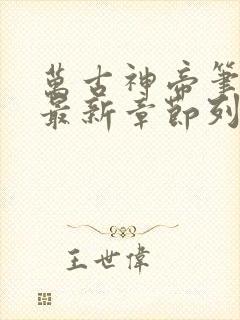 萬古神帝筆
最新章節列
王世偉